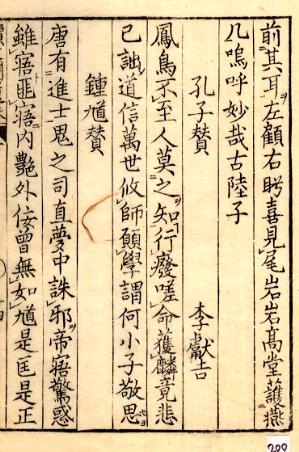 前其耳左顧右眄喜見尾岩岩高堂護燕
几嗚呼妙哉古陸子
孔子賛　李獻吉
鳳鳥不至人莫之知行廢嗟命獲麟竟悲
已詘道信萬世攸師願學謂何小子敬思
鍾馗賛
唐有進士鬼之司直夢中誅邪帝寤驚惑
雖寤匪寤内艷外佞曾無如馗是匡是正
209